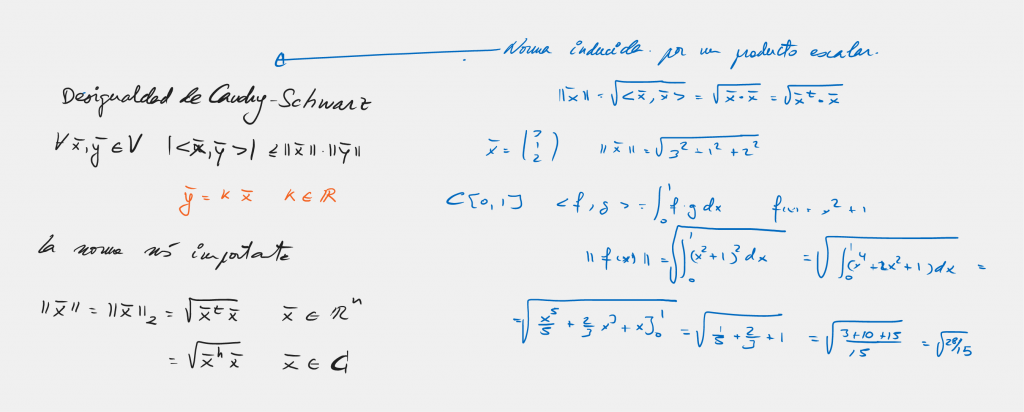 Norma inducida por un producto escalar.
Desigualdad de Cauchy-Schwarz
∀ x̄, ȳ ∈ V |<x̄, ȳ>| ≤ ||x̄||·||ȳ||
ȳ = k x̄ k ∈ ℝ
la norma más importante
||x̄|| = ||x̄||₂ = √(x̄ᵗ x̄) x̄ ∈ ℝⁿ
= √(x̄ʰ x̄) x̄ ∈ ℂ
||x̄|| = √(<x̄, x̄>) = √(x̄·x̄) = √(x̄ᵗ·x̄)
x̄ = (3 1 2) ||x̄|| = √(3² + 1² + 2²)
C[0,1] <f, g> = ∫₀¹ f·g dx f(x) = x² + 1
||f(x)|| = √(∫₀¹ (x²+1)² dx) = √(∫₀¹ (x⁴ + 2x² + 1) dx) =
= √(x⁵/5 + 2/3 x³ + x]₀¹) = √(1/5 + 2/3 + 1) = √((3+10+15)/15) = √(28/15)